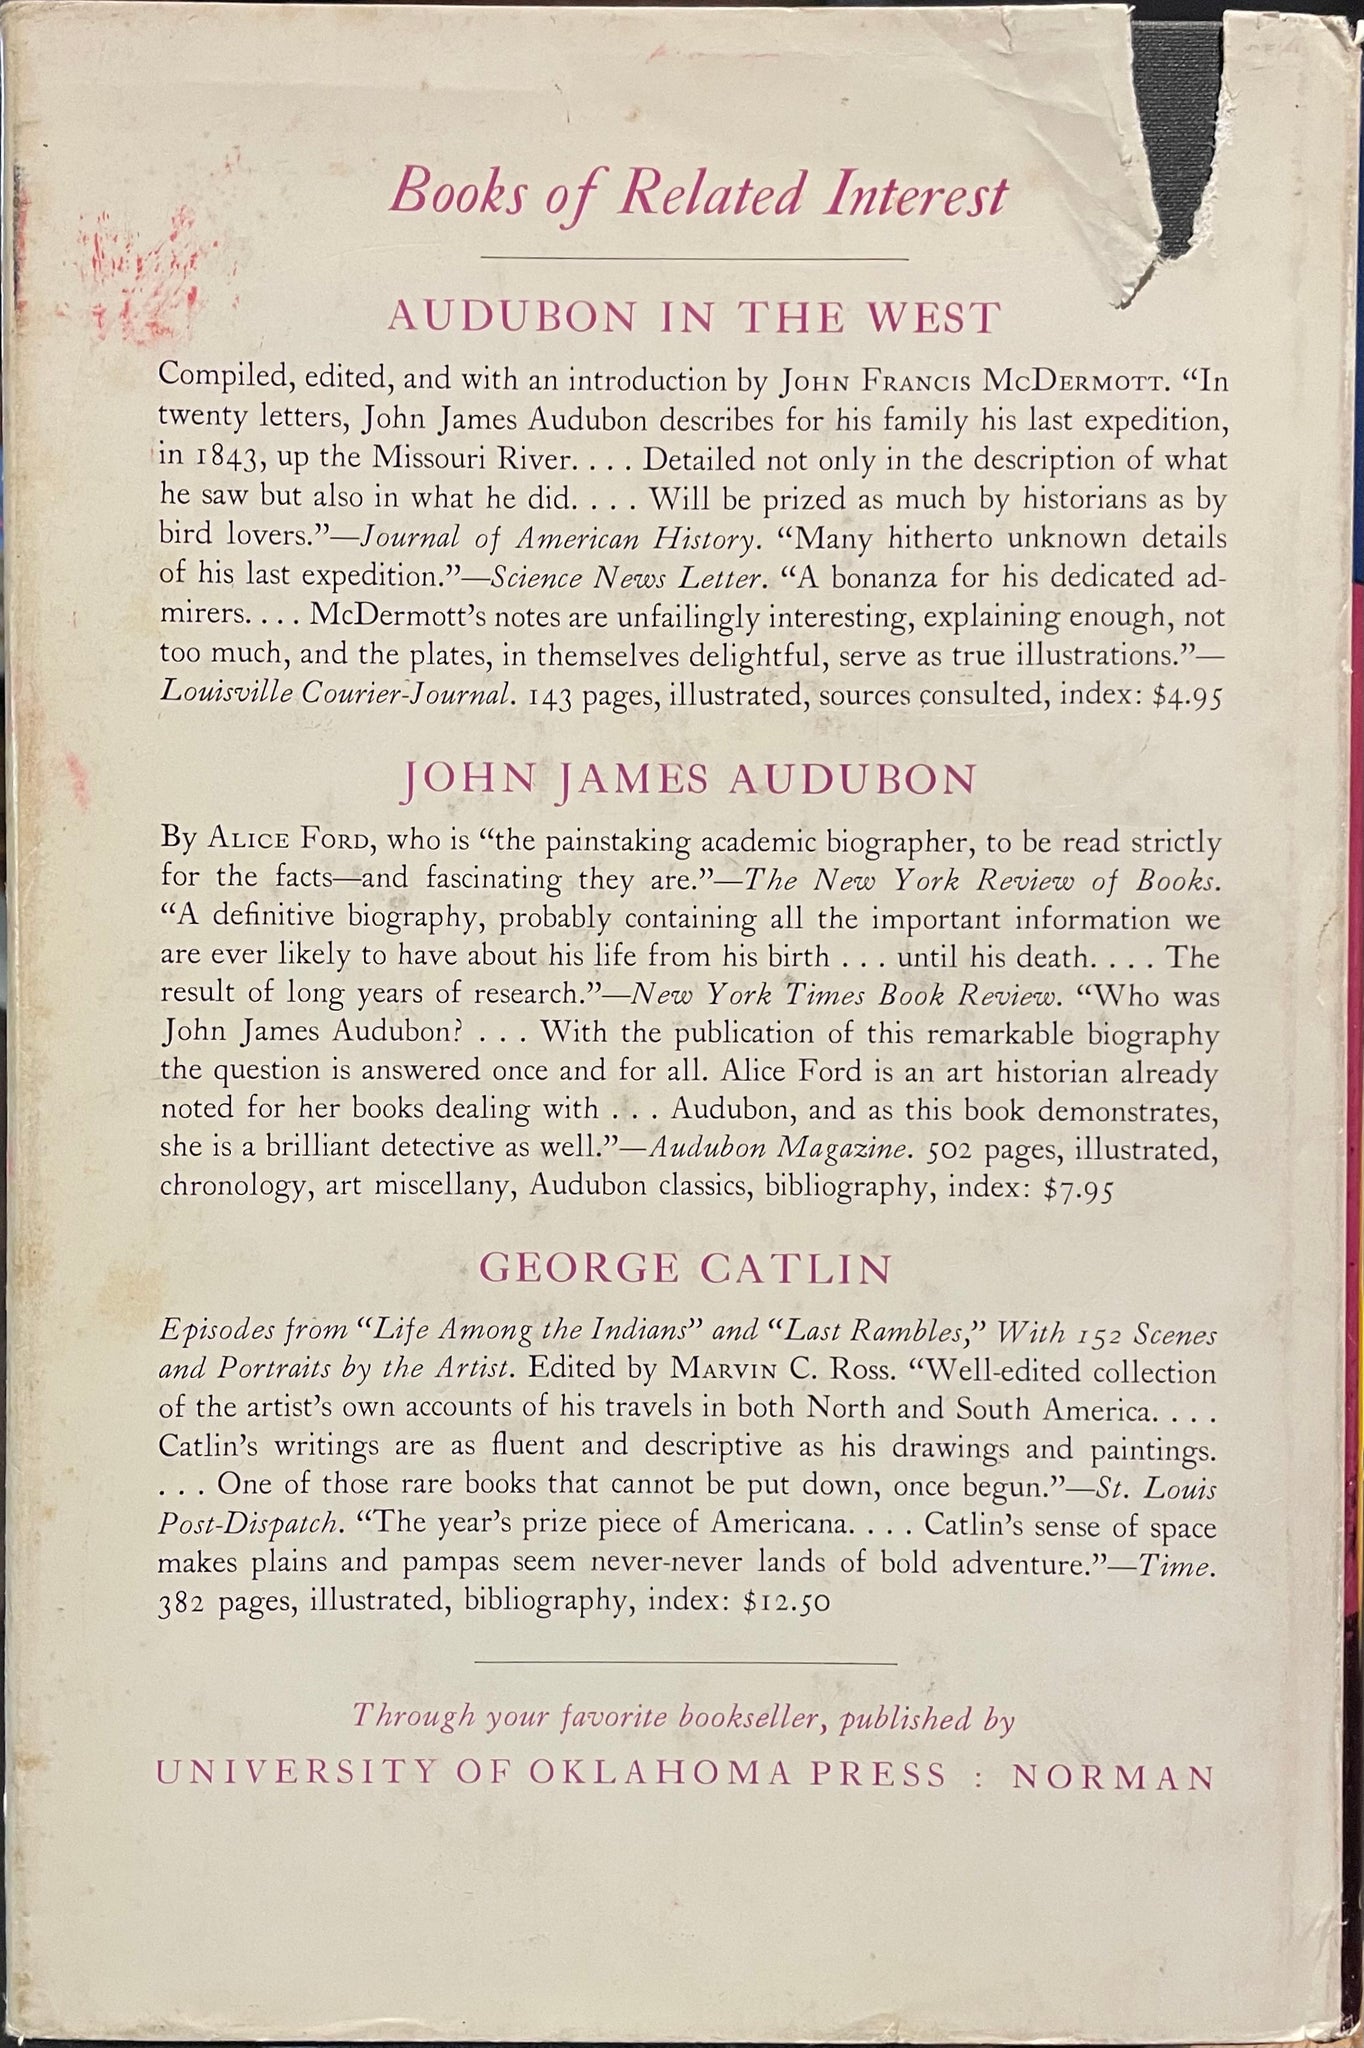 Books of Related Interest
AUDUBON IN THE WEST
Compiled, edited, and with an introduction by JOHN FRANCIS MCDERMOTT. “In
twenty letters, John James Audubon describes for his family his last expedition,
in 1843, up the Missouri River. . . . Detailed not only in the description of what
he saw but also in what he did. . . . Will be prized as much by historians as by
bird lovers.”—Journal of American History. “Many hitherto unknown details
of his last expedition.”—Science News Letter. “A bonanza for his dedicated ad-
mirers. . . . McDermott’s notes are unfailingly interesting, explaining enough, not
too much, and the plates, in themselves delightful, serve as true illustrations.”—
Louisville Courier-Journal. 143 pages, illustrated, sources consulted, index: $4.95
JOHN JAMES AUDUBON
By ALICE FORD, who is “the painstaking academic biographer, to be read strictly
for the facts—and fascinating they are.”—The New York Review of Books.
“A definitive biography, probably containing all the important information we
are ever likely to have about his life from his birth . . . until his death. . . . The
result of long years of research.”—New York Times Book Review. “Who was
John James Audubon? . . . With the publication of this remarkable biography
the question is answered once and for all. Alice Ford is an art historian already
noted for her books dealing with . . . Audubon, and as this book demonstrates,
she is a brilliant detective as well.”—Audubon Magazine. 502 pages, illustrated,
chronology, art miscellany, Audubon classics, bibliography, index: $7.95
GEORGE CATLIN
Episodes from “Life Among the Indians” and “Last Rambles,” With 152 Scenes
and Portraits by the Artist. Edited by MARVIN C. ROSS. “Well-edited collection
of the artist’s own accounts of his travels in both North and South America. . . .
Catlin’s writings are as fluent and descriptive as his drawings and paintings.
. . . One of those rare books that cannot be put down, once begun.”—St. Louis
Post-Dispatch. “The year’s prize piece of Americana. . . . Catlin’s sense of space
makes plains and pampas seem never-never lands of bold adventure.”—Time.
382 pages, illustrated, bibliography, index: $12.50
Through your favorite bookseller, published by
UNIVERSITY OF OKLAHOMA PRESS : NORMAN